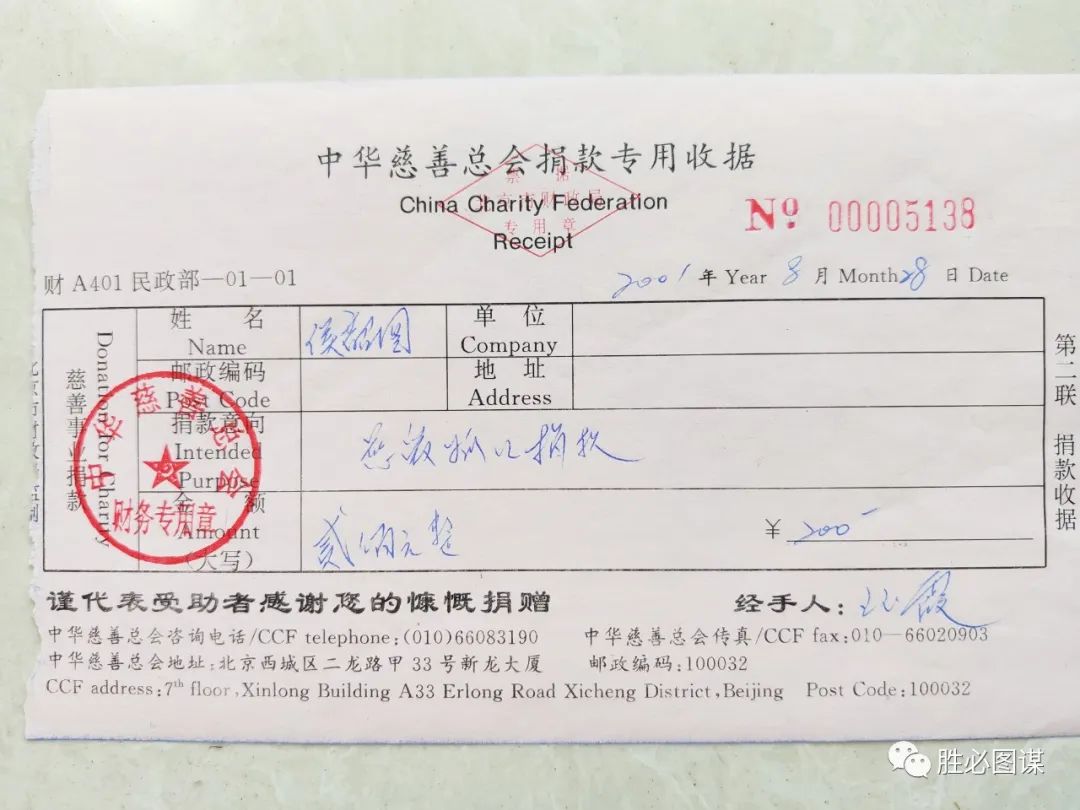 中华慈善总会捐款专用收据
票据
北京市财政局
专用章
China Charity Federation
Receipt
№ 00005138
财 A401 民政部—01—01
2001 年 Year 8 月 Month 28 日 Date
慈善事业捐款
Donation for Charity
姓 名
Name
单 位
Company
邮政编码
Post Code
地 址
Address
捐款意向
Intended
Purpose
捐款
金 额
Amount
(大写)
贰佰元整
¥ 200-
中华慈善总会
财务专用章
第二联 捐款收据
谨代表受助者感谢您的慷慨捐赠
经手人:
中华慈善总会咨询电话/CCF telephone:(010)66083190
中华慈善总会传真/CCF fax:010-66020903
中华慈善总会地址:北京西城区二龙路甲 33 号新龙大厦
邮政编码:100032
CCF address:7th floor,Xinlong Building A33 Erlong Road Xicheng District,Beijing Post Code:100032
胜必图谋